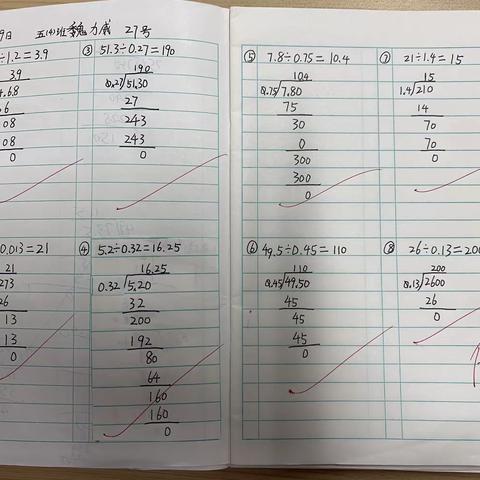 9日 五(4)班魏力威 27号
÷1.2=3.9
39
4.68
.6
08
08
0
③ 51.3÷0.27=190
190
0.27√51.30
27
243
243
0
0.013=21
21
273
26
13
13
0
④ 5.2÷0.32=16.25
16.25
0.32√5.20
32
200
192
80
64
160
160
0
⑤ 7.8÷0.75=10.4
104
0.75√7.80
75
30
0
300
300
0
⑥ 49.5÷0.45=110
110
0.45√49.50
45
45
45
0
⑦ 21÷1.4=15
15
1.4√210
14
70
70
0
⑧ 26÷0.13=200
200
0.13√2600
26
0